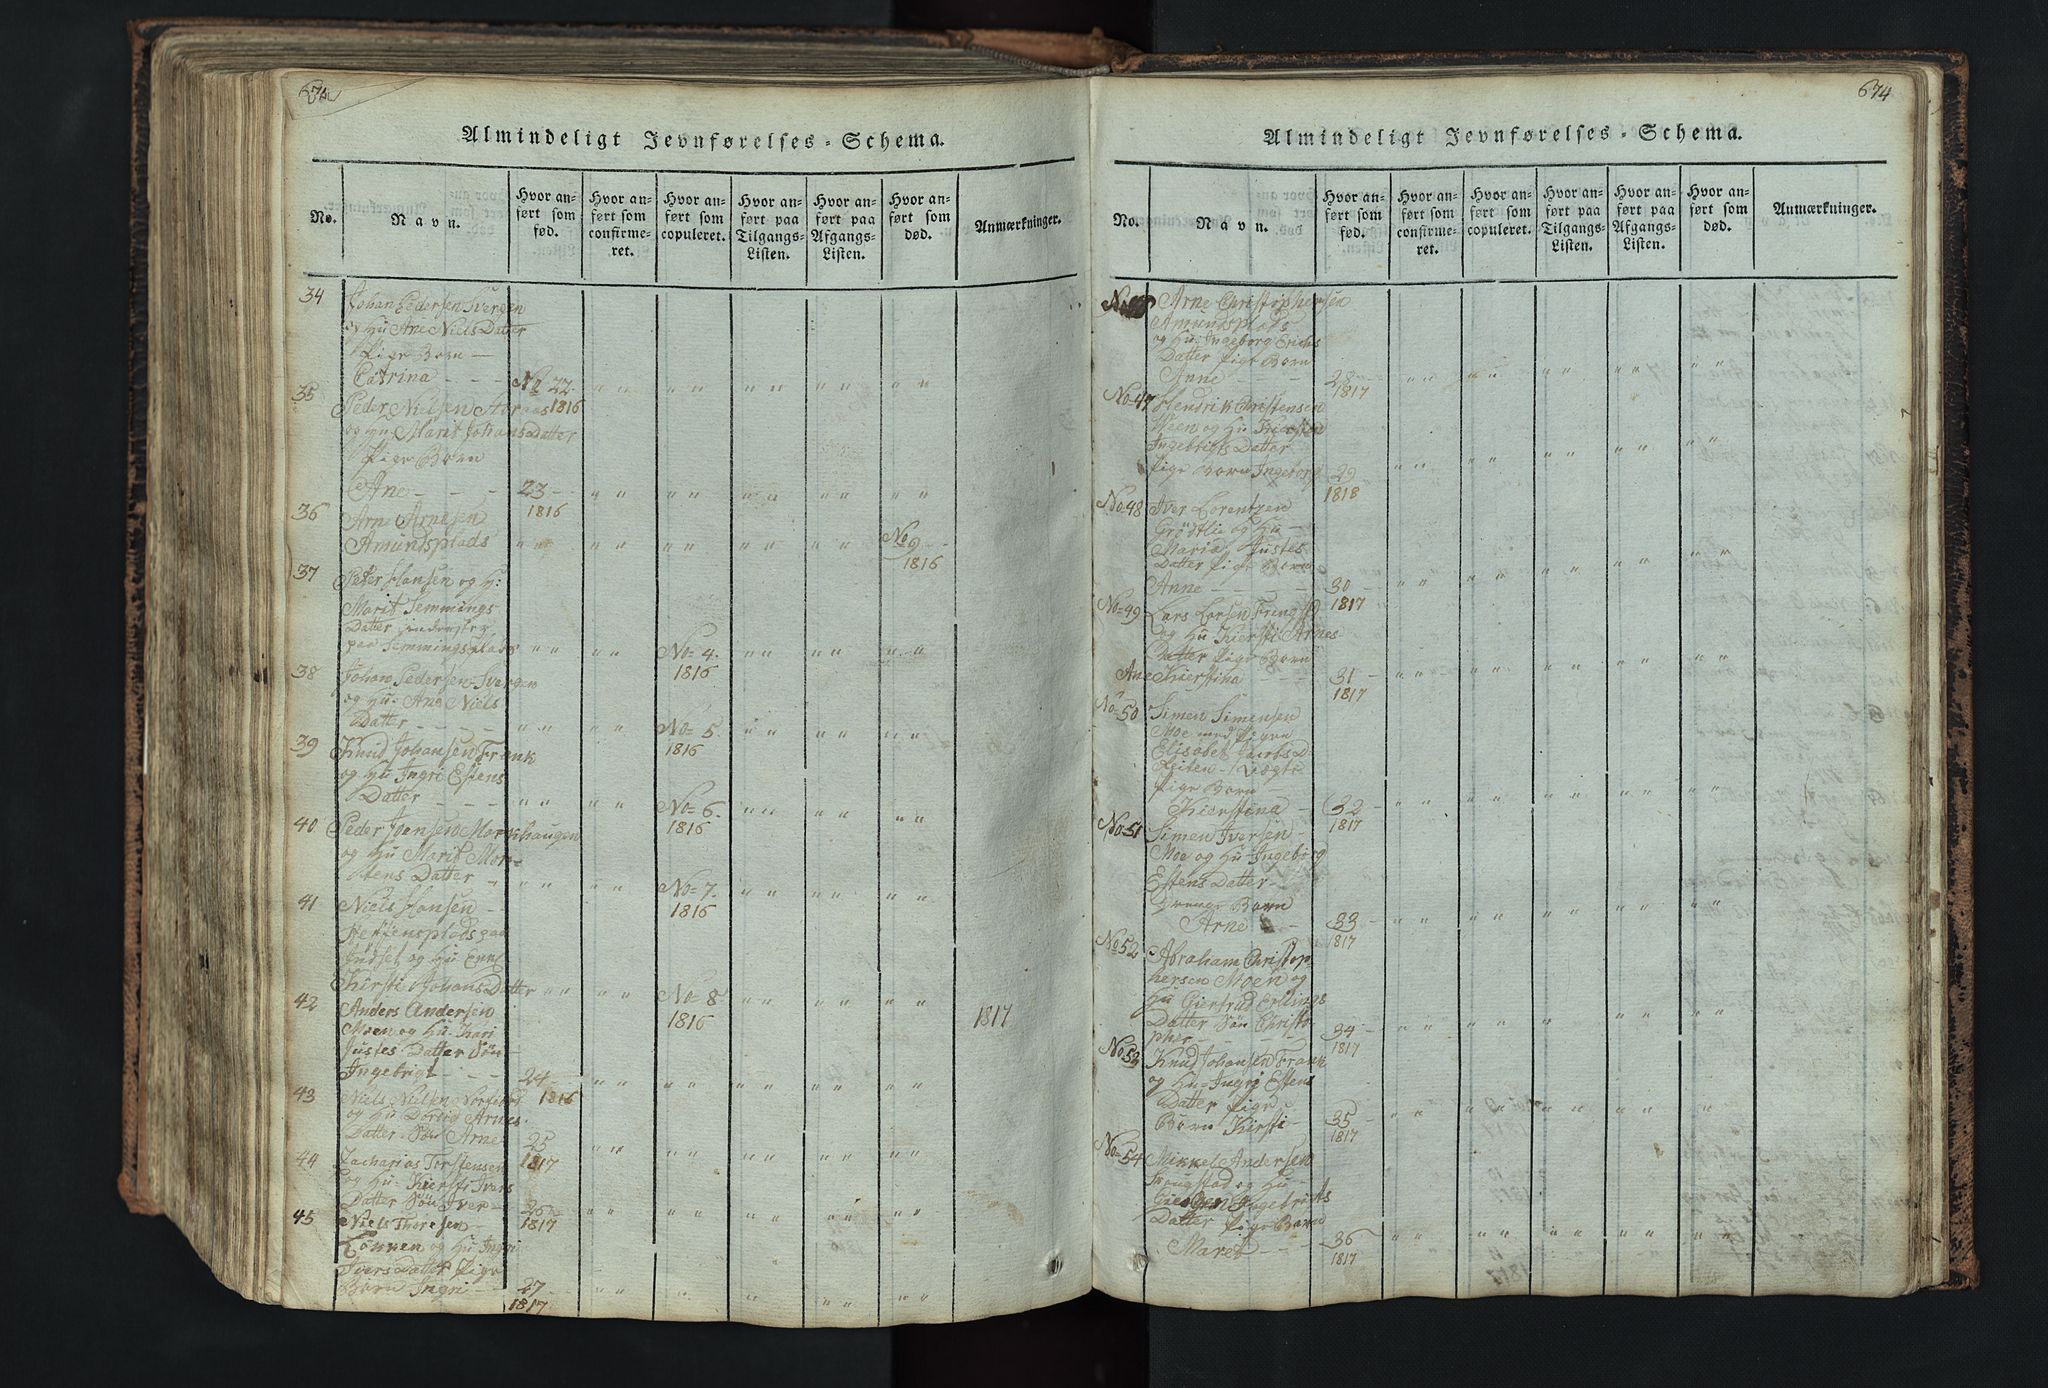 Almindeligt Jevnførelses-Schema.
No.
Navn.
Hvor an-
ført som
fød.
Hvor an-
ført som
confirme-
ret.
Hvor an-
ført som
copuleret.
Hvor an-
ført paa
Tilgangs-
Listen.
Hvor an-
ført paa
Afgangs-
Listen.
Hvor an-
ført som
død.
Anmærkninger.
34 Johan Pedersen Svergen
og Hu Ane Niels Datter
Pige Barn —
Catrina - - - No 22. " " " " " " " " " "
1816
35 Peder Nielsen
og Hu. Marit Johans Datter
Pige Barn
Ane - - - 23 - " " " " " " " " " "
1816
36 Arn Arnesen
Amundsplads " " " " " " " " " " No 9 -
1816
37 Peter Hansen og H:
Marit Semmings
Datter
paa Semmingsplads " " " " No= 4. " " " " " "
1816
38 Johan Pedersen Svergen
og Hu. Ane Niels
Datter - - " " " " No= 5. " " " " " "
1816
39 Knud Johansen Frank
og Hu Ingri Estens
Datter - - - " " " " No= 6. " " " " " "
1816
40 Peder Joensen Morkhaugen
og Hu Marit Mor-
tens Datter - " " " " No= 7. " " " " " "
1816
41 Niels Hansen -
paa
Indset og Hu
Kirsti Johans Datter " " " " No= 8 " " " " " "
1816
42 Anders Andersen 1817
Moen og Hu. Kari
Justes Datter Søn
Ingebrigt - - 24 - " " " " " " " " " "
1816
43 Niels Nielsen
og Hu Dordid Arnes
Datter. Søn Arne 25 " " " " " " " " " "
1817
44 Zacharias Torstensen
og Hu. Kiersti Ivers
Datter Søn Iver - 26 - " " " " " " " " " "
1817
45 Niels Thoresen -
Lønnen og Hu Ingri
Ivers Datter Pige
Barn Ingri - - 27 - " " " " " " " " " "
1817
674
Almindeligt Jevnførelses-Schema.
No.
Navn.
Hvor an-
ført som
fød.
Hvor an-
ført som
confirme-
ret.
Hvor an-
ført som
copuleret.
Hvor an-
ført paa
Tilgangs-
Listen.
Hvor an-
ført paa
Afgangs-
Listen.
Hvor an-
ført som
død.
Anmærkninger.
Arne Christophersen
Amundsplads
og Hu. Ingeborg Erichs
Datter Pige Barn
Anne - 28 - " " " " " " " " " "
1817
No=47 Hendrik Christensen
Moen og Hu Kiersten
Ingebrigts Datter
Pige Barn Ingeborg 29 " " " " " " " " " "
1818
No=48 Iver Lorentzen
Grödtlie og Hu -
Maria Justes
Datter Pige Barn
Anne - - - 30 - " " " " " " " " " "
1817
No=49 Lars Larsen
og Hu Kiersti Arnes
Datter Pige Barn
Ane Kierstina - - 31 - " " " " " " " " " "
1817
No=50 Simen Simensen
Moe med Pigen
Elisabet Jacobs D
Pige Barn -
Kierstina - 32 - " " " " " " " " " "
1817
No=51 Simen Iversen -
Moe og Hu- Ingeborg
Estens Datter -
Drenge Barn
Arne - 33 - " " " " " " " " " "
1817
No 52 Abraham Christop-
hersen Moen og
Hu Giertrud Erlings
Datter Søn Christo-
pher - - - 34 - " " " " " " " " "
1817
No=53 Knud Johansen Frank
og Hu- Ingri Estens
Datter Pige
Barn Kirsti - 35 - " " " " " " " " " "
1817
No=54 Mikkel Andersen
og Hu -
Ingebricts
Datter Pige Barn
Maret - - - 36 - " " " " " " " " " "
1817